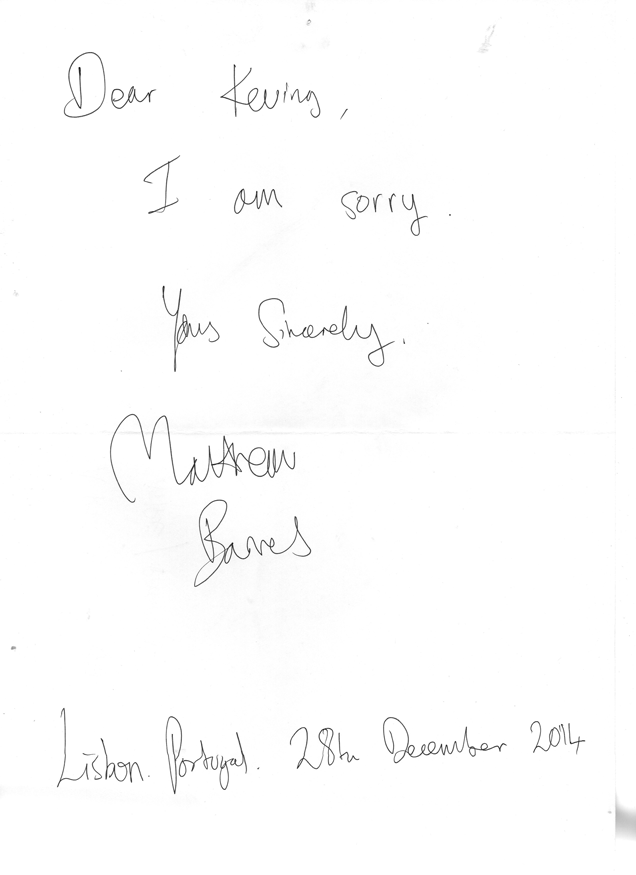 Dear Keving,
I am sorry.
Yours Sincerely.
Matthew
Barnes
Lisbon. Portugal. 28th December 2014